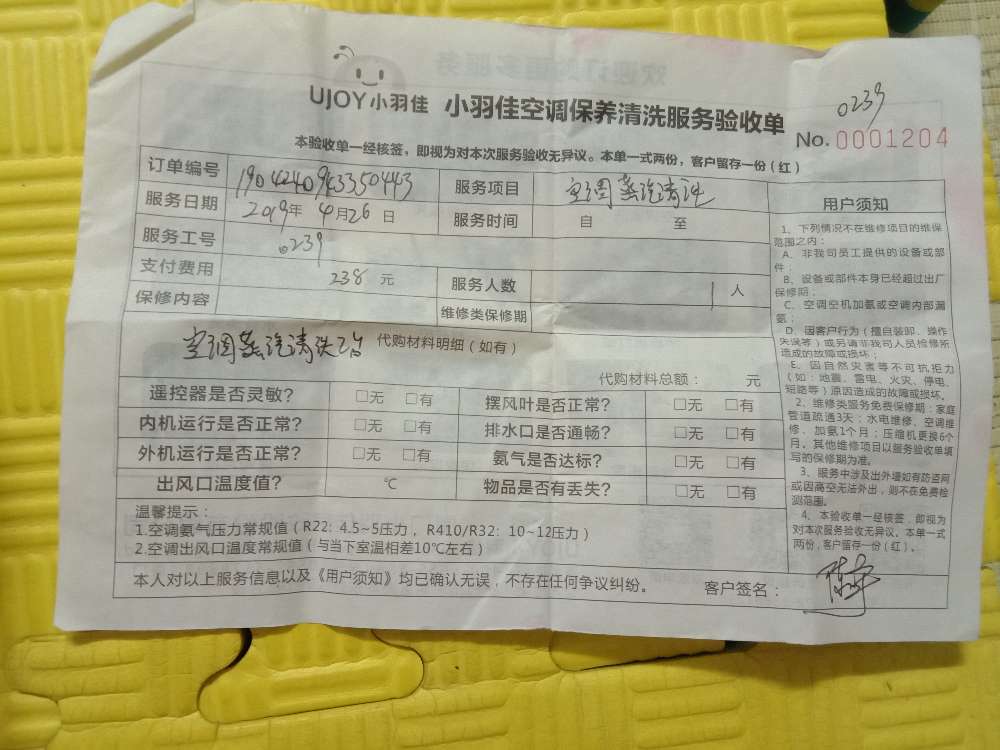 UJOY小羽佳 小羽佳空调保养清洗服务验收单
0239
No. 0001204
本验收单一经核签，即视为对本次服务验收无异议。本单一式两份，客户留存一份（红）
订单编号 服务项目 空调蒸汽清洗
服务日期 2019年 4月26日 服务时间 自 至
服务工号 0239
支付费用 238 元 服务人数 1 人
保修内容 维修类保修期
空调蒸汽清洗 代购材料明细（如有）
代购材料总额： 元
遥控器是否灵敏？ □无 □有 摆风叶是否正常？ □无 □有
内机运行是否正常？ □无 □有 排水口是否通畅？ □无 □有
外机运行是否正常？ □无 □有 氨气是否达标？ □无 □有
出风口温度值？ ℃ 物品是否有丢失？ □无 □有
温馨提示：
1.空调氨气压力常规值（R22: 4.5~5压力，R410/R32: 10~12压力）
2.空调出风口温度常规值（与当下室温相差10℃左右）
本人对以上服务信息以及《用户须知》均已确认无误，不存在任何争议纠纷。 客户签名：
用户须知
1、下列情况不在维修项目的维保
范围之内：
A、非我司员工提供的设备或部
件；
B、设备或部件本身已经超过出厂
保修期；
C、空调空机加氨或空调内部漏
氨；
D、因客户行为（擅自装卸、操作
失误等）或另请非我司人员检修所
造成的故障或损坏；
E、因自然灾害等不可抗拒力
（如：地震、雷电、火灾、停电、
短路等）原因造成的故障或损坏。
2、维修类服务免费保修期：家庭
管道疏通3天；水电维修、空调维
修、加氨1个月；压缩机更换6个
月。其他维修项目以服务验收单填
写的保修期为准。
3、服务中涉及出外墙如有防盗网
或因高空无法外出，则不在免费检
测范围。
4、本验收单一经核签，即视为
对本次服务验收无异议。本单一式
两份，客户留存一份（红）。